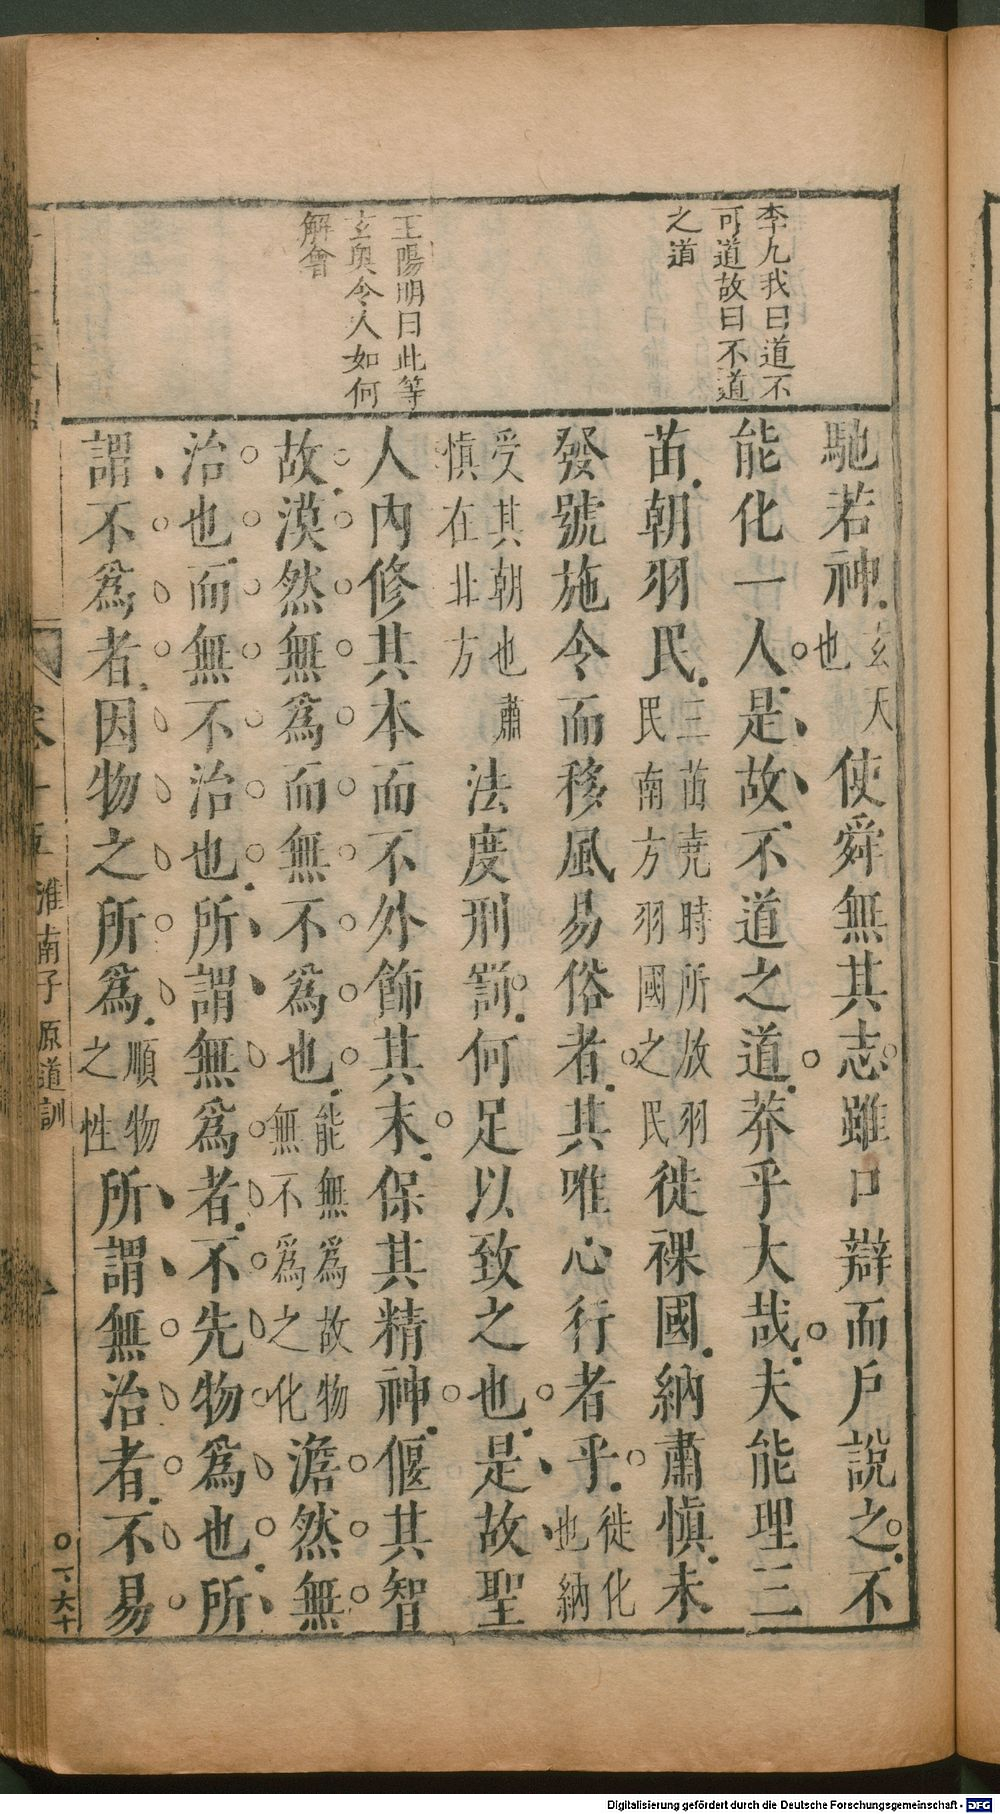 李九我曰道不
可道故曰不道
之道
王陽明曰此等
玄奧令人如何
解會
馳若神玄天也使舜無其志雖口辯而戶說之不
能化一人是故不道之道莽乎大哉夫能理三
苗朝羽民三苗堯時所放羽民南方羽國之民徙裸國納肅慎未
發號施令而移風易俗者其唯心行者乎徙化也納
受其朝也肅慎在北方法度刑罰何足以致之也是故聖
人內修其本而不外飾其末保其精神偃其智
故漠然無為而無不為也能無為故物無不為之化澹然無
治也而無不治也所謂無為者不先物為也所
謂不為者因物之所為順物之性所謂無治者不易
卷十五 淮南子 原道訓
Digitalisierung gefördert durch die Deutsche Forschungsgemeinschaft - DFG